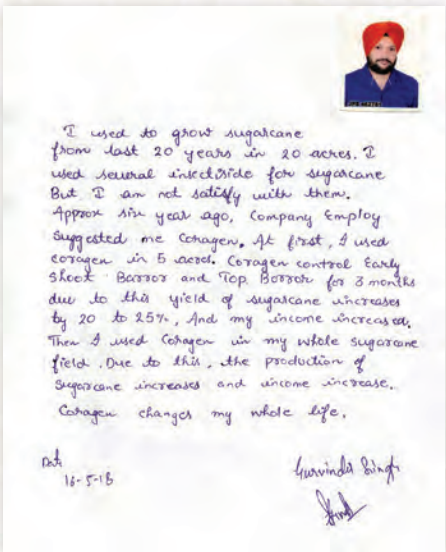 I used to grow sugarcane
from last 20 years in 20 acres. I
used several insectiside for sugarcane
But I am not satisfy with them.
Approx six year ago, Company Employ
Suggested me Coragen. At first, I used
coragen in 5 acres. Coragen control Early
Shoot Barror and Top Borror for 3 months
due to this yield of sugarcane increases
by 20 to 25%, And my income increased.
Then I used Coragen in my whole sugarcane
field. Due to this, the production of
Sugarcane increases and income increase.
Coragen changes my whole life.
Date
16-5-18
Gurvinder Singh